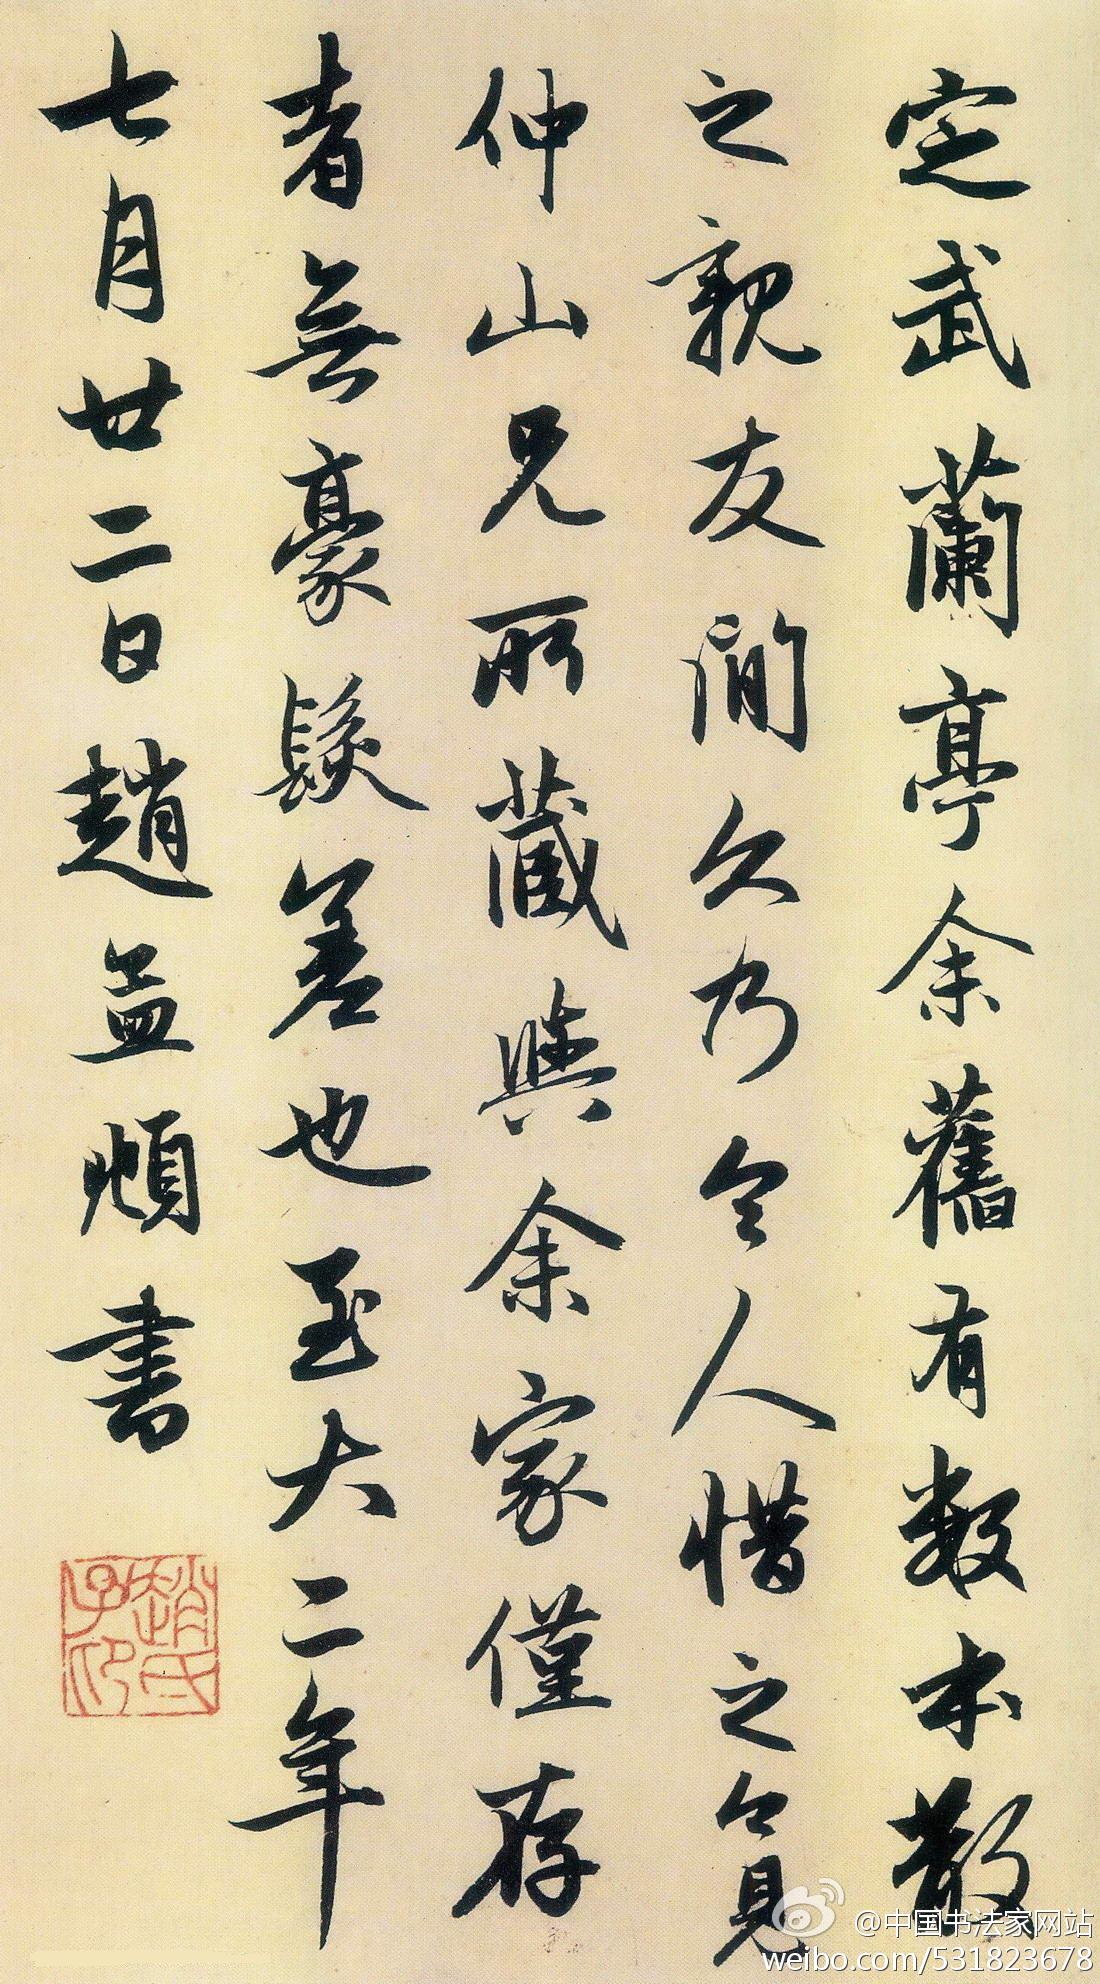 定武蘭亭余舊有數本散
之親友間久乃令人惜之今見
仲山兄所藏與余家僅存
者無豪髮差也至大二年
七月廿二日趙孟頫書
趙氏子印
@中国书法家网站
weibo.com/531823678